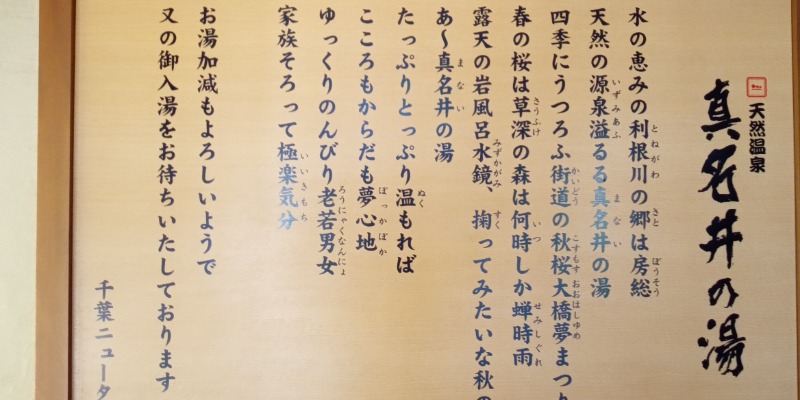 天然温泉
真名井の湯
水の恵みの利根川の郷は房総
天然の源泉溢るる真名井の湯
四季にうつろふ街道の秋桜大橋夢まつり
春の桜は草深の森は何時しか蝉時雨
露天の岩風呂水鏡、掬ってみたいな秋の
あ～真名井の湯
たっぷりとっぷり温もれば
こころもからだも夢心地
ゆっくりのんびり老若男女
家族そろって極楽気分
お湯加減もよろしいようで
又の御入湯をお待ちいたしております
千葉ニュータ